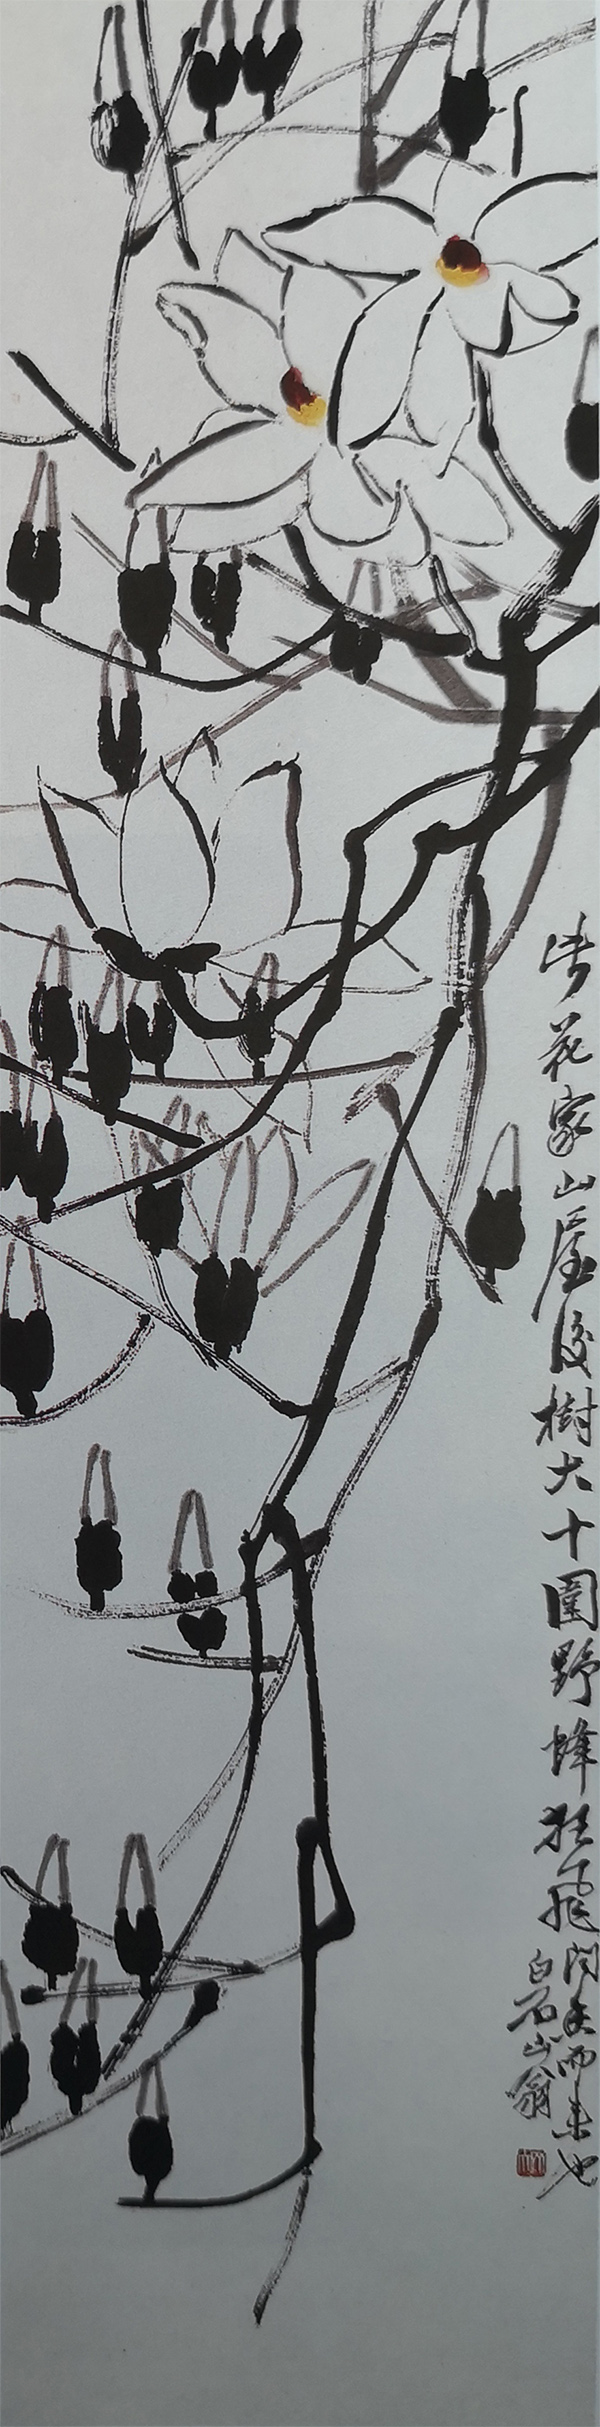 此花家山屋後樹大十圍野蜂狂飛聞香而來也
白石山翁